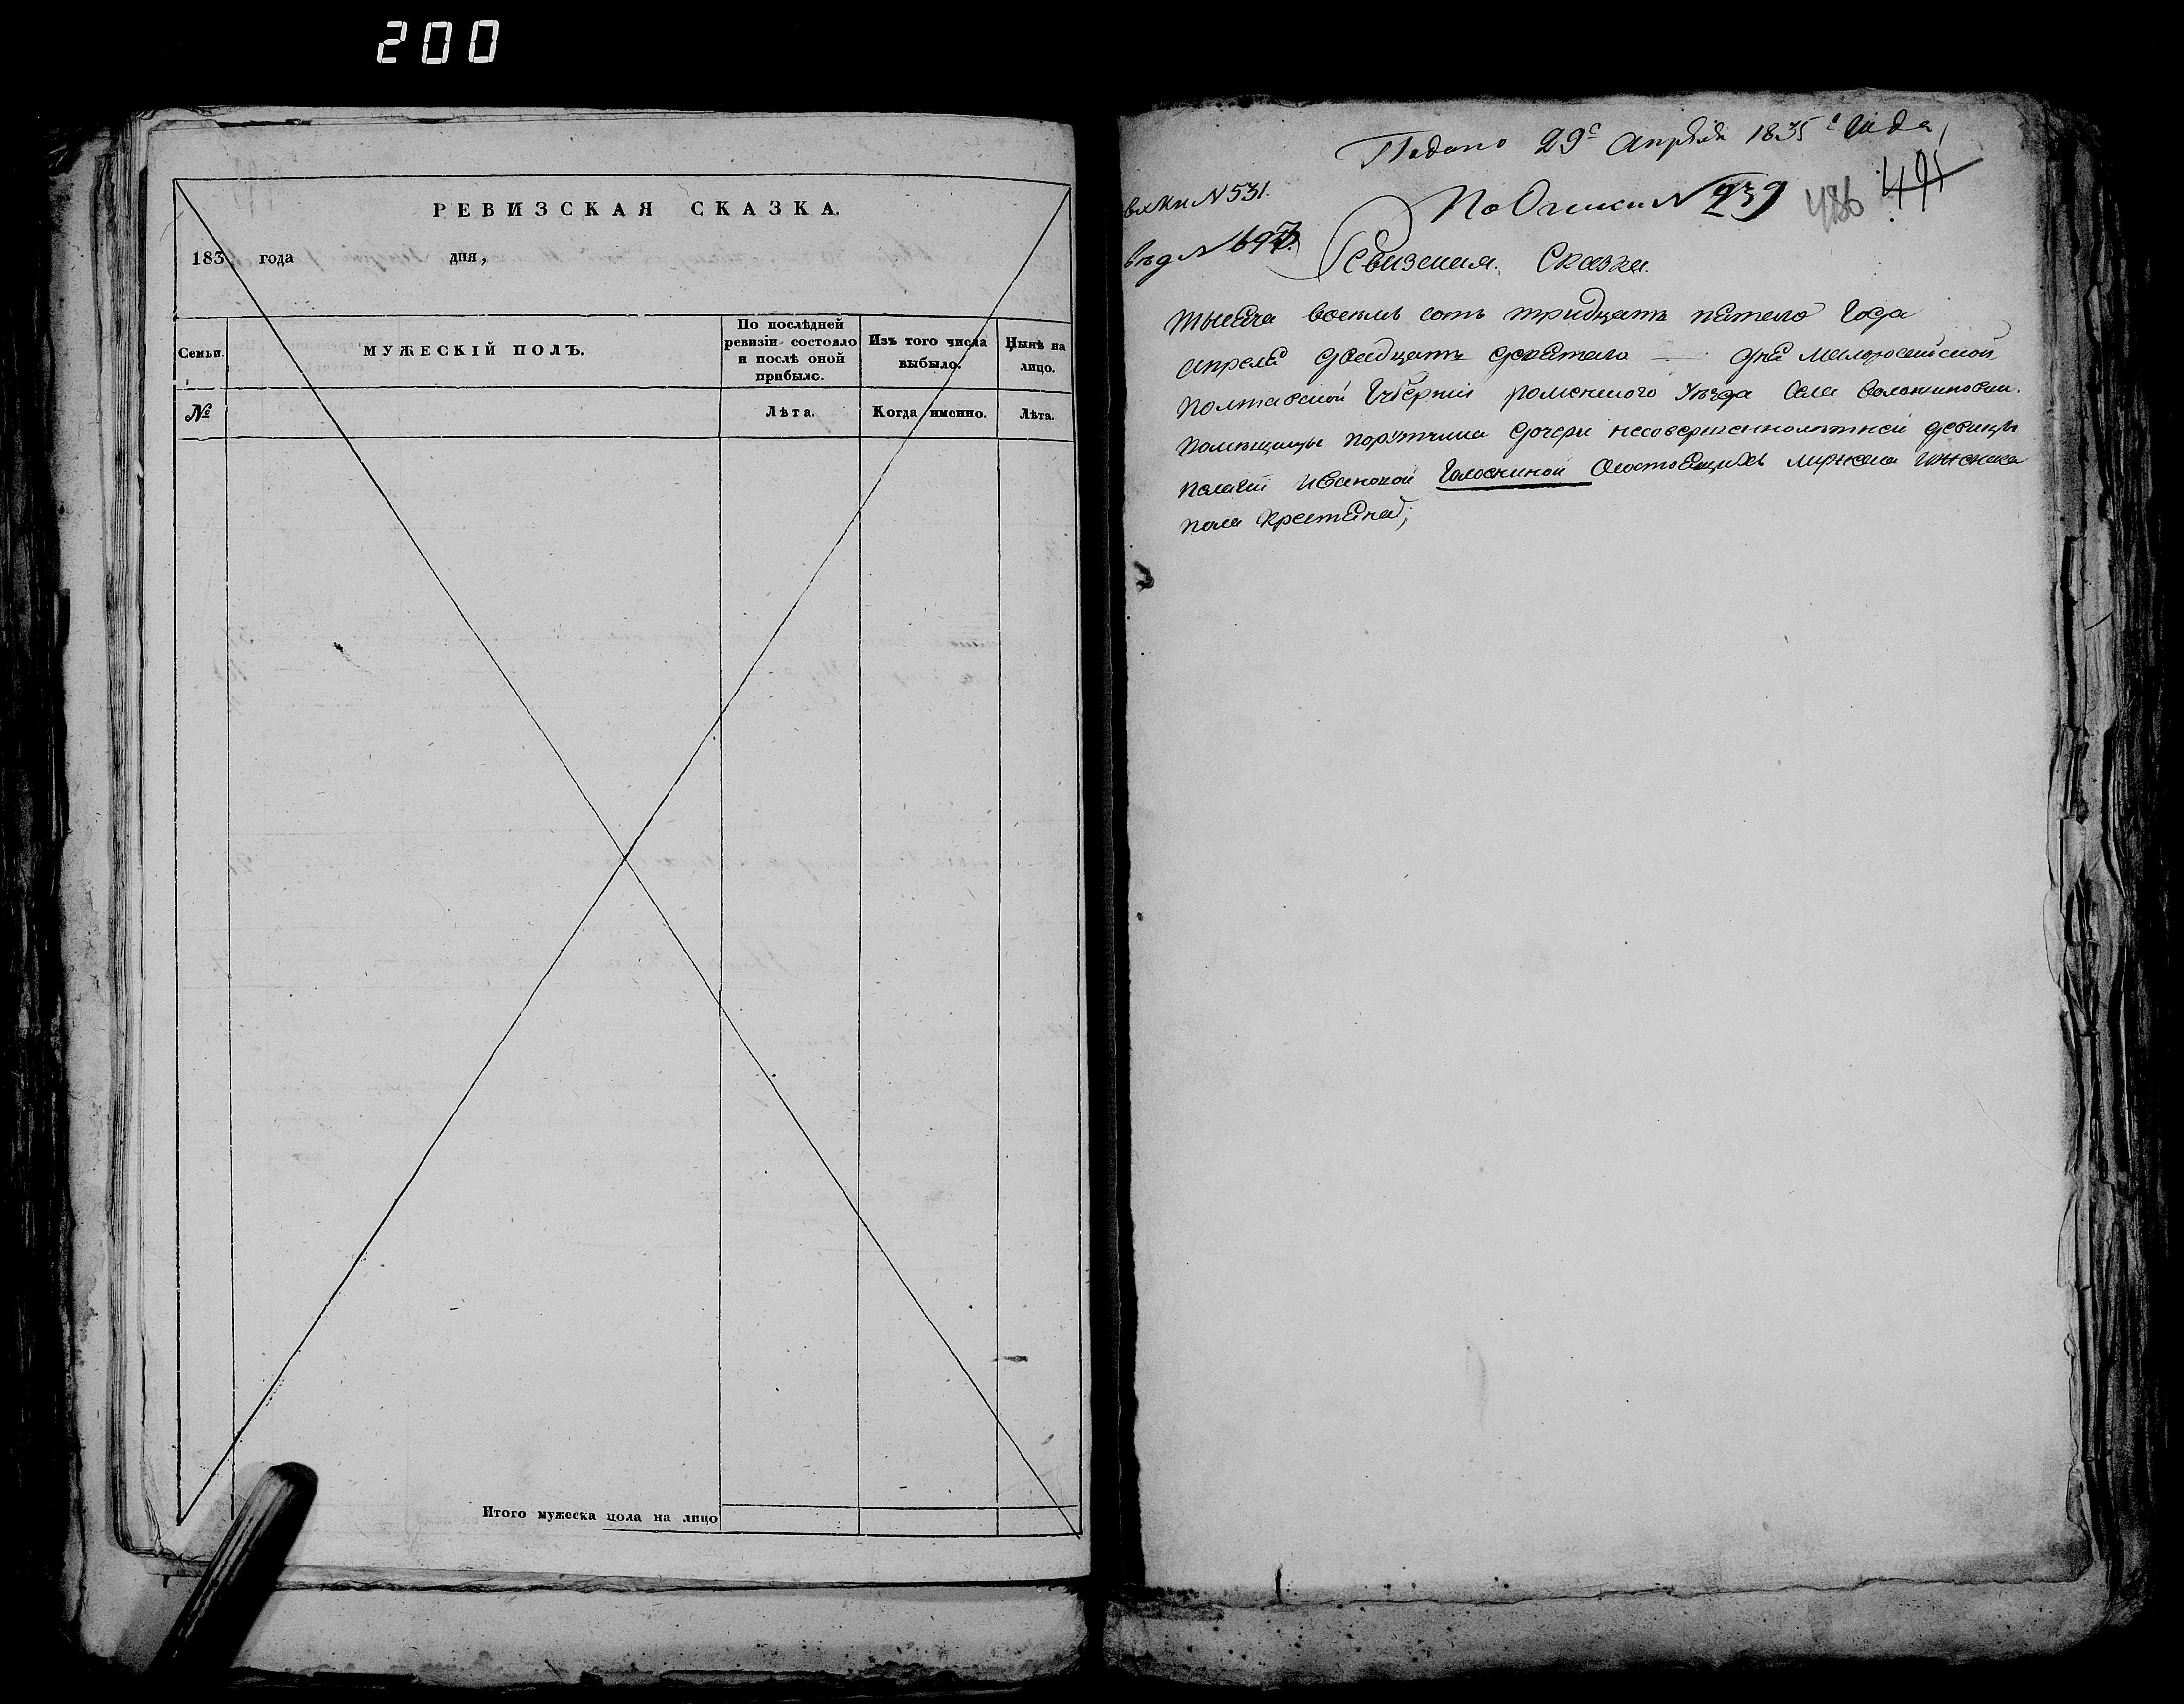 200
РЕВИЗСКАЯ СКАЗКА.
183 года дня,
Семьи.
МУЖЕСКІЙ ПОЛЪ.
По послѣдней ревизіи состояло и послѣ оной прибыло.
Изъ того числа выбыло.
Нынѣ на лицо.
№
Лѣта.
Когда именно.
Лѣта.
Итого мужеска пола на лицо
Подано 29г Апрѣля 1835г Года
N 531.
По Описи N 239 486
N 697
Ревизская Сказка.
тысяча восемь сотъ тридцать пятого Года
апреля двадцать девятого — дня Малоросийской
Полтавской Губерніи роменского Уезда Села
помещицы порутчика дочери несовершеннолетней девицы
Ивановой Голоскиной состоящихъ мужеска Женска
пола крестьянах;